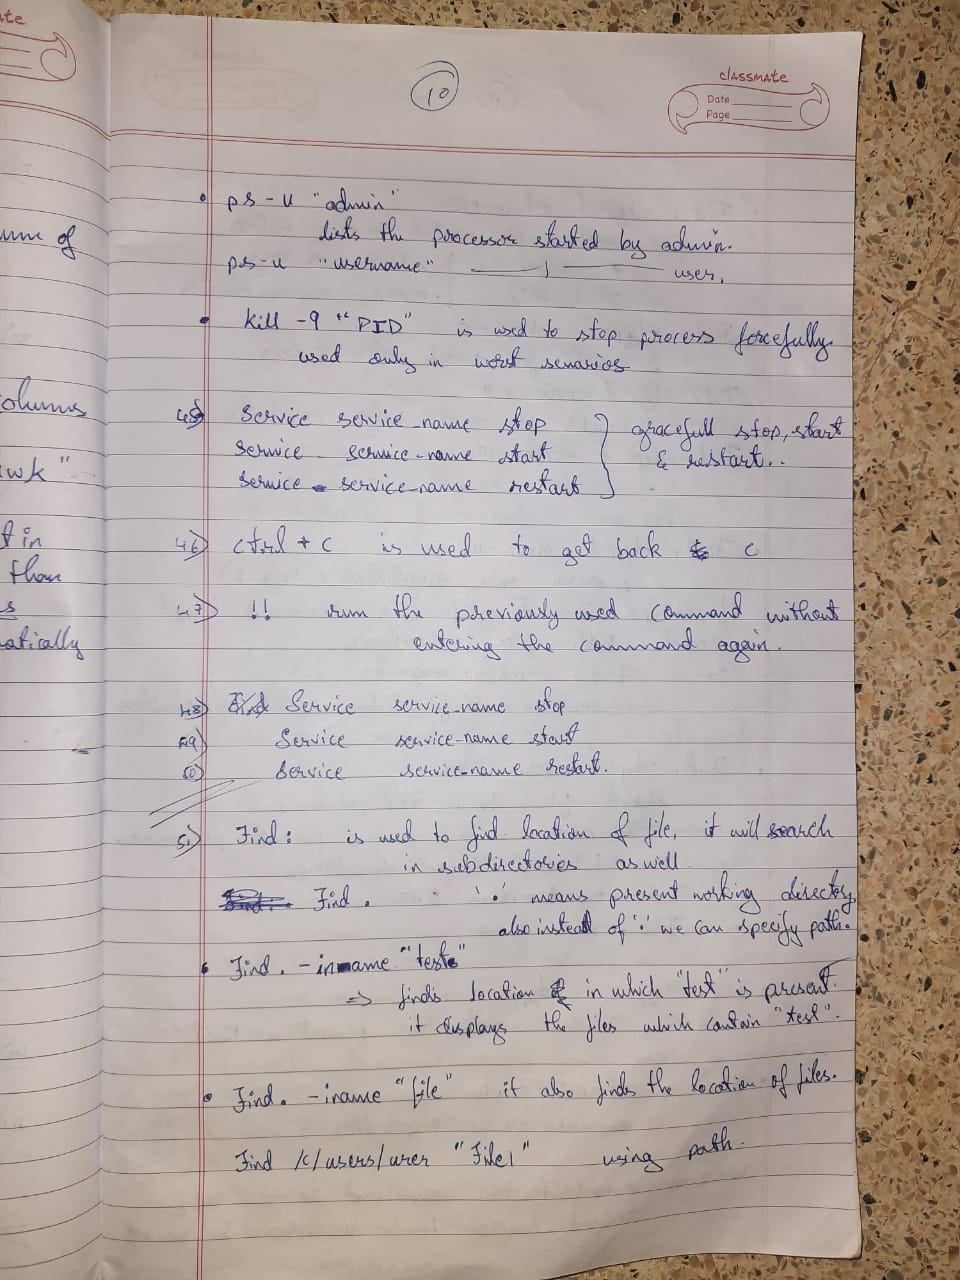 ate
ume of
olumns
wk "
t in
than
s
atically
10
classmate
Date
Page
• ps - u "admin"
lists the processor started by admin.
ps - u "username" —— | —— user,
• kill -9 "PID" is used to stop process forcefully
used only in worst senarios
45) Service service_name stop } gracefull stop, start
Service service-name start & restart..
Service service-name restart
46) ctrl + c is used to get back c
47) !! run the previously used command without
entering the command again.
48) Service service-name stop
49) Service service-name start
50) Service service-name restart.
51) Find : is used to find location of file, it will search
in subdirectories as well
Find . '.' means present working directory
also instead of '.' we can specify path.
• Find . -iname "test"
=> finds location in which "test" is present.
it displays the files which contain "test".
• Find . -iname "file" it also finds the location of files.
Find /c/users/urer "File1" using path.